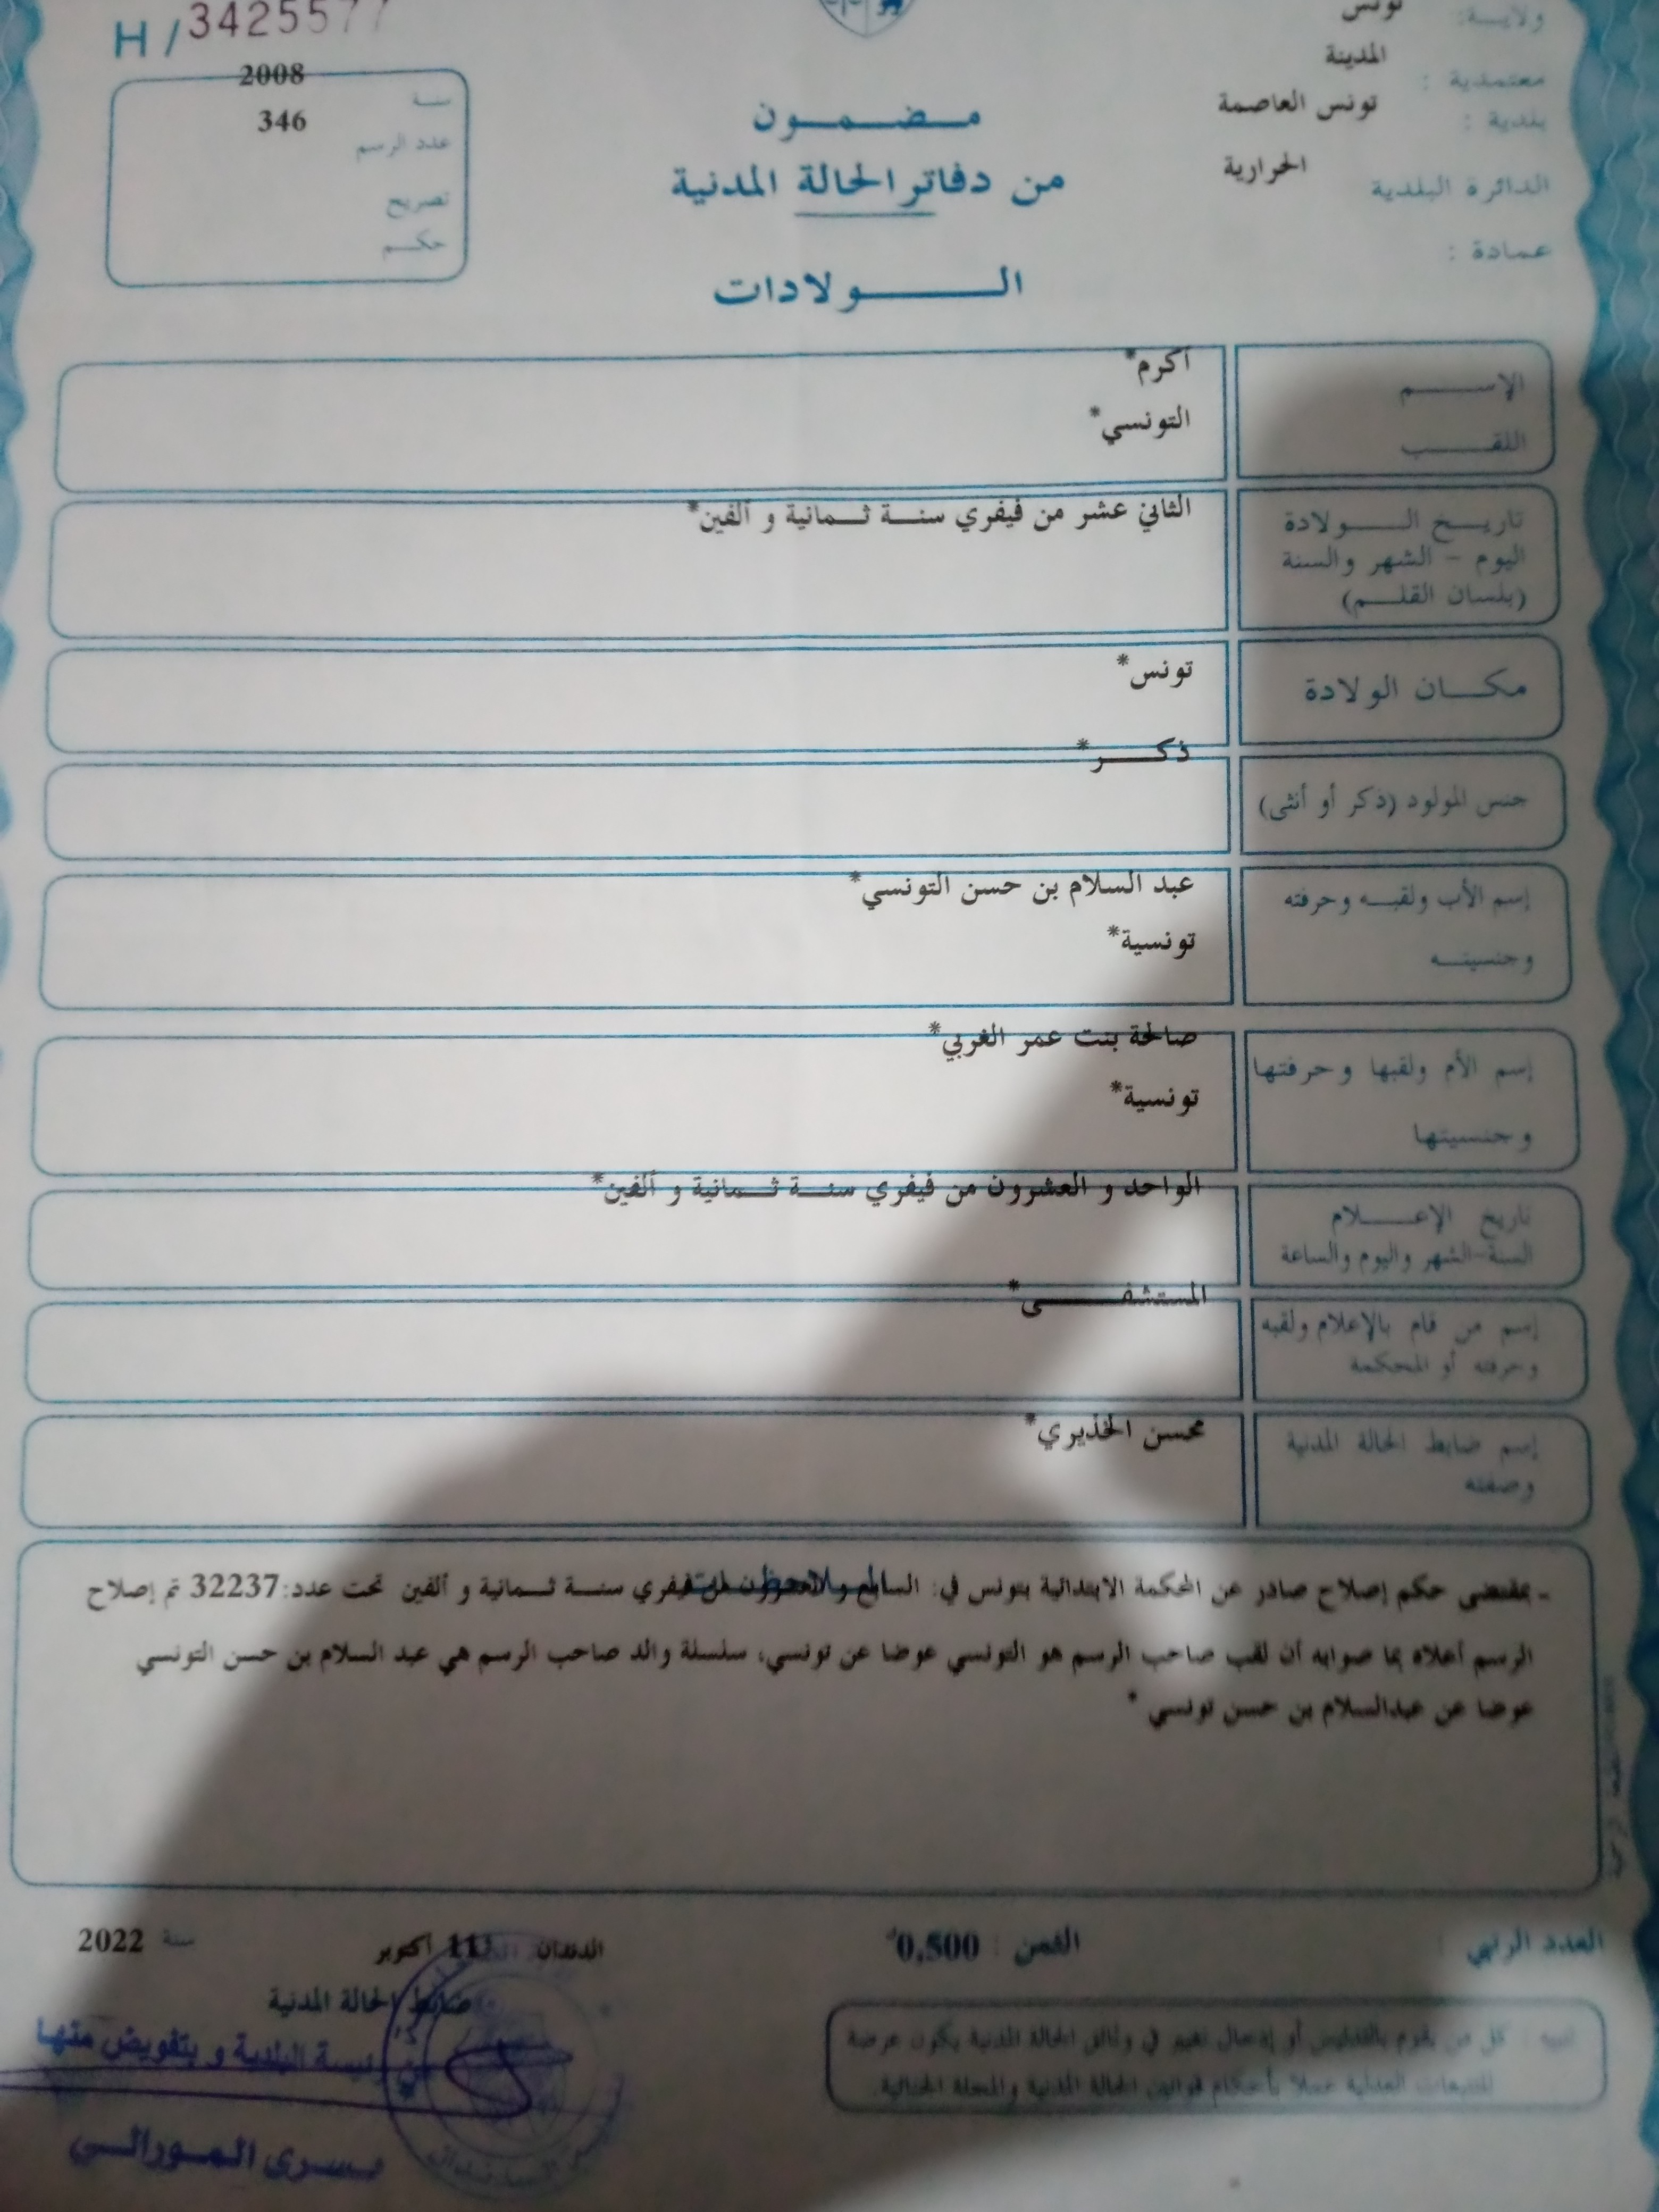 H / 3425577
ولايـة: تونس
معتمدية : المدينة
بلدية : تونس العاصمة
الدائرة البلدية الحرارية
عمادة :
سنة 2008
عدد الرسم 346
تصريح
حكم
مضمون
من دفاتر الحالة المدنية
الولادات
الإسم أكرم*
اللقب التونسي*
تاريخ الولادة
اليوم - الشهر والسنة
(بلسان القلم)
الثاني عشر من فيفري سنة ثمانية و ألفين*
مكان الولادة تونس*
جنس المولود (ذكر أو أنثى) ذكر*
إسم الأب ولقبه وحرفته
وجنسيته
عبد السلام بن حسن التونسي*
تونسية*
إسم الأم ولقبها وحرفتها
وجنسيتها
صالحة بنت عمر الغربي*
تونسية*
تاريخ الإعلام
السنة-الشهر واليوم والساعة
الواحد و العشرون من فيفري سنة ثمانية و ألفين*
إسم من قام بالإعلام ولقبه
وحرفته أو المحكمة
المستشفى*
إسم ضابط الحالة المدنية
وصفته
محسن الخذيري*
- بمقتضى حكم إصلاح صادر عن المحكمة الابتدائية بتونس في: السابع و العشرون من فيفري سنة ثمانية و ألفين تحت عدد:32237 تم إصلاح
الرسم أعلاه بما صوابه أن لقب صاحب الرسم هو التونسي عوضا عن تونسي، سلسلة والد صاحب الرسم هي عبد السلام بن حسن التونسي
عوضا عن عبدالسلام بن حسن تونسي *
العدد الرتبي
الثمن : 0,500د
الدندان 11 أكتوبر سنة 2022
ضابط الحالة المدنية
عن رئيسة البلدية و بتفويض منها
يسرى المورالي
تنبيه : كل من يقوم بالتدليس أو إدخال تغيير في وثائق الحالة المدنية يكون عرضة
للتتبعات العدلية عملا بأحكام قوانين الحالة المدنية والمجلة الجنائية.